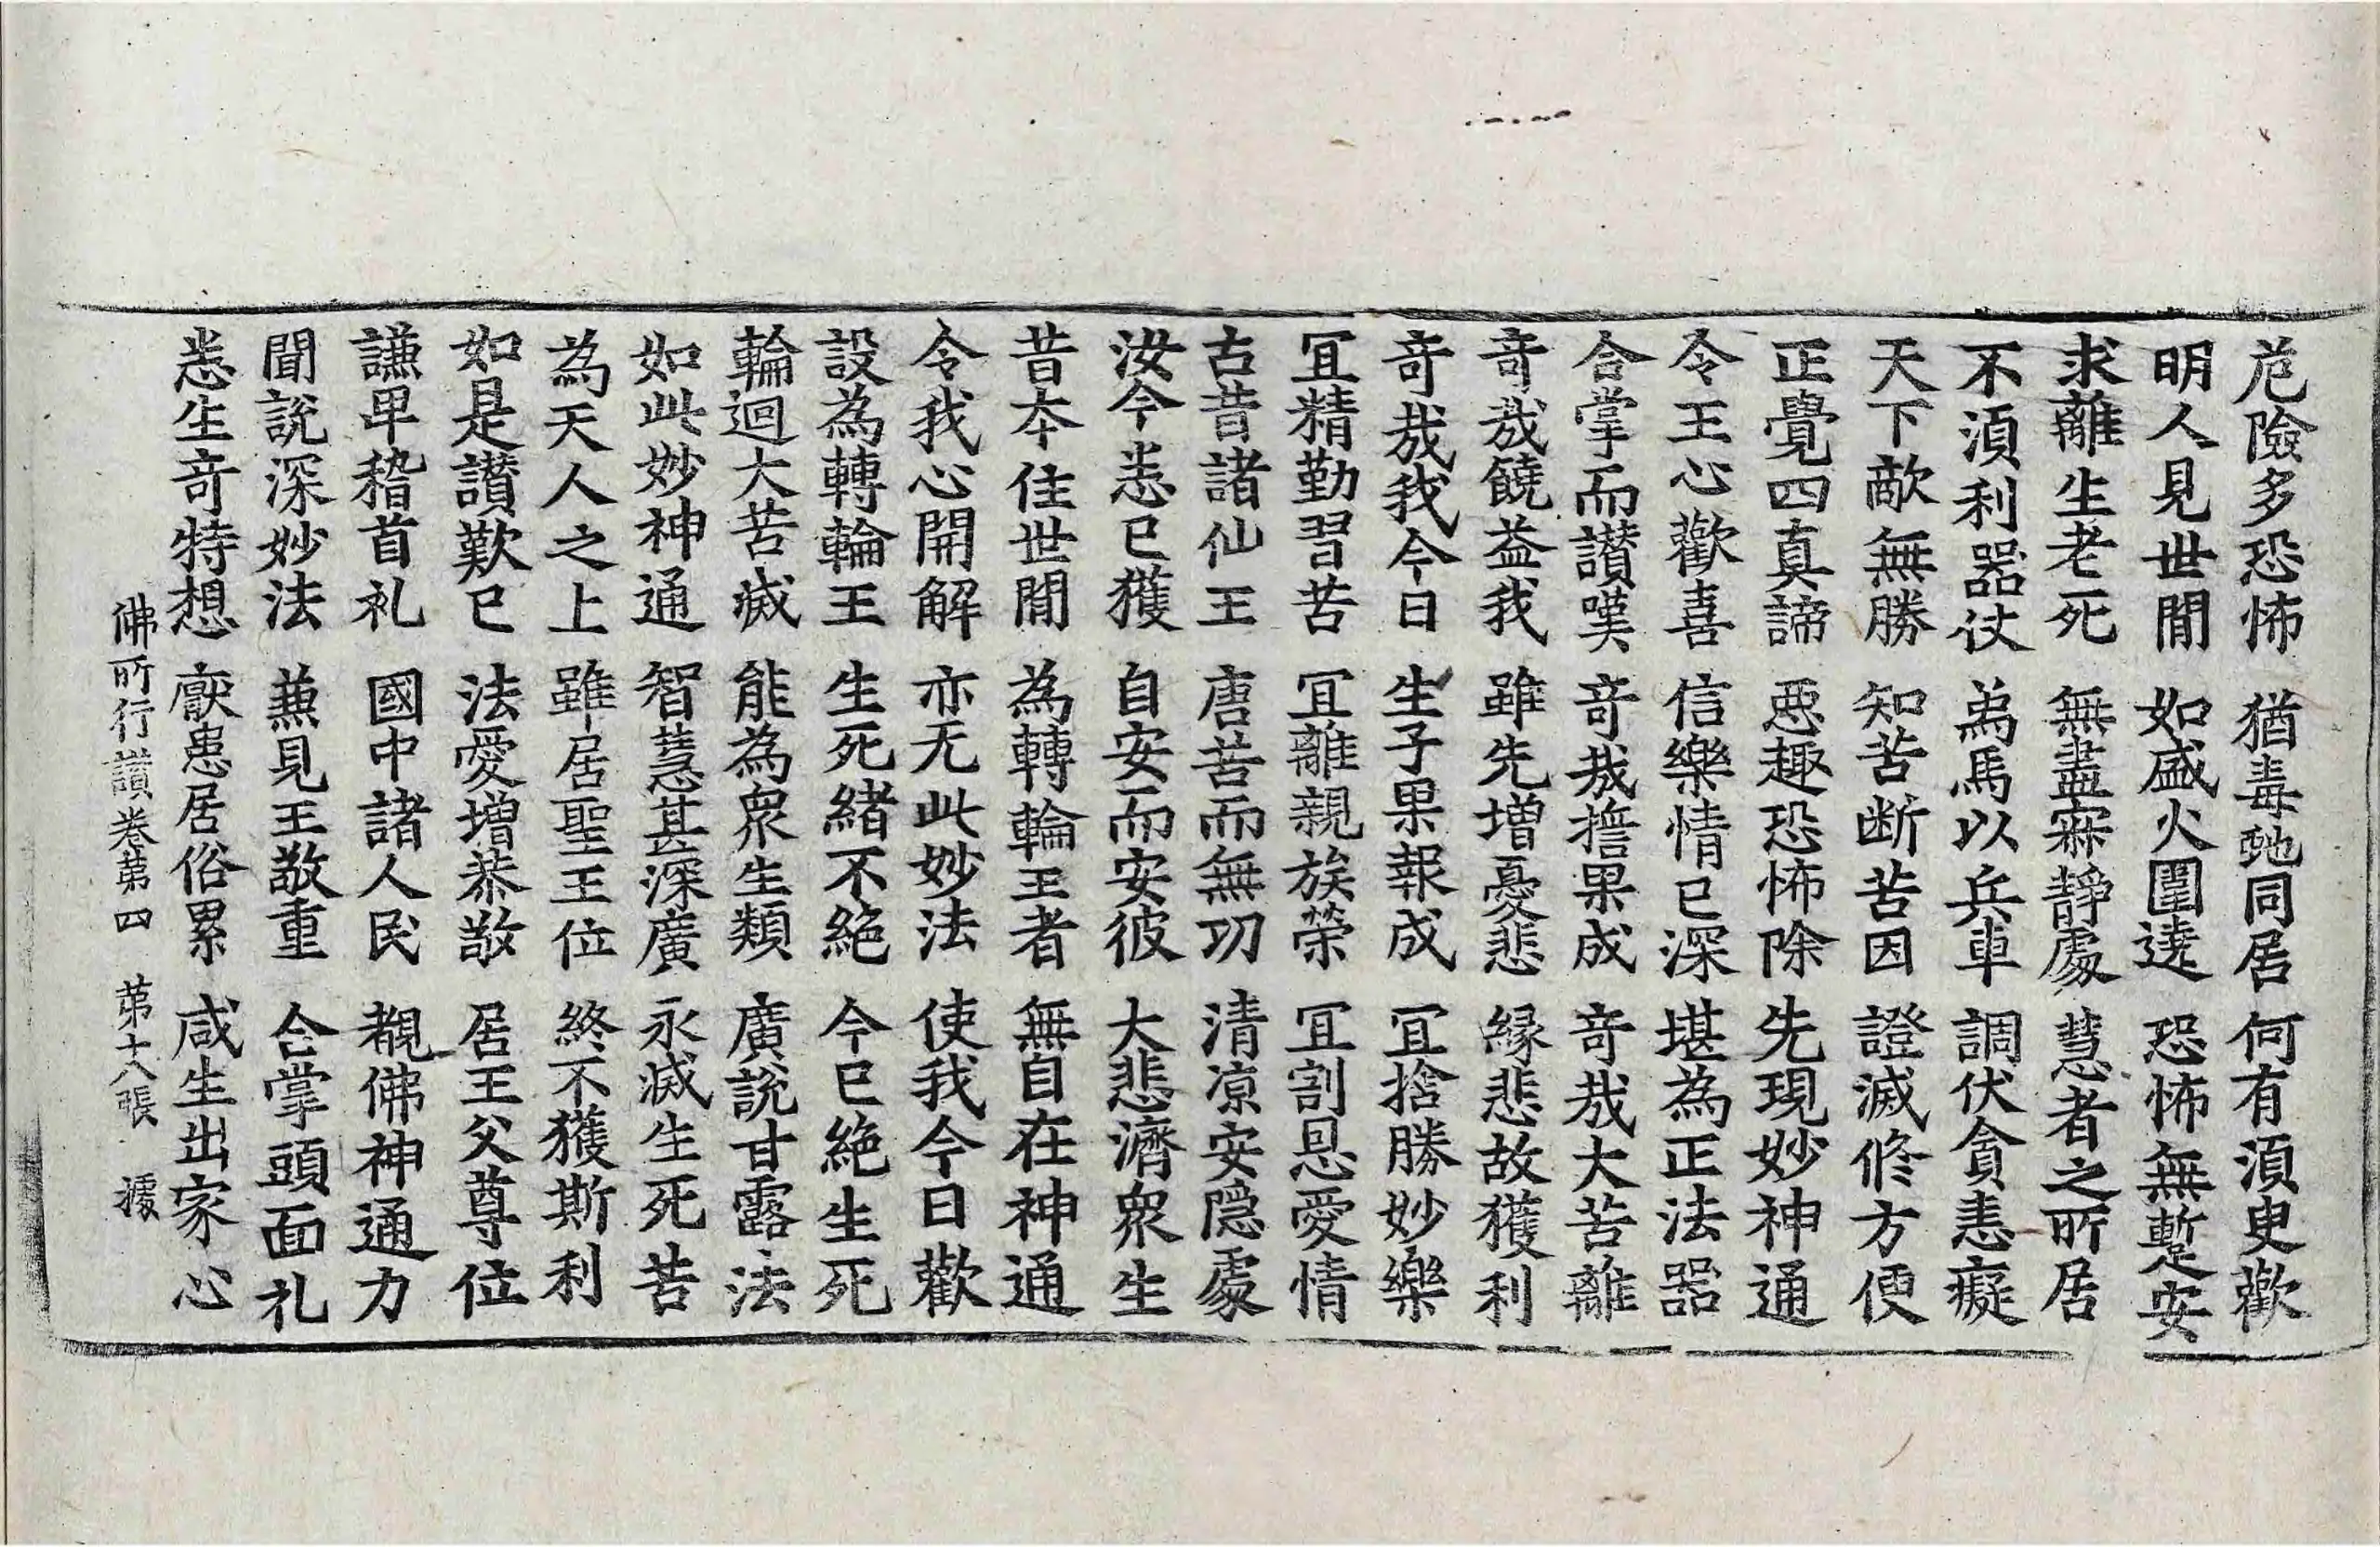 危險多恐怖 猶毒虵同居 何有湏臾歡
明人見世閒 如盛火圍遶 恐怖無蹔安
求離生老死 無盡寂靜處 慧者之所居
不湏利器仗 為馬以兵車 調伏貪恚癡
天下敵無勝 知苦斷苦因 證滅脩方便
正覺四真諦 惡趣恐怖除 先現妙神通
令王心歡喜 信樂情已深 堪為正法器
合掌而讃嘆 竒㢤擔果成 竒㢤大苦離
竒㢤饒益我 雖先增憂悲 緣悲故獲利
竒㢤我今日 生子果報成 冝捨勝妙樂
冝精勤習苦 冝離親族榮 冝割恩愛情
古昔諸仙王 唐苦而無功 清凉安隱處
汝今悉已獲 自安而安彼 大悲濟衆生
昔夲住世閒 為轉輪王者 無自在神通
令我心開解 亦无此妙法 使我今日歡
設為轉輪王 生死緒不絕 今已絕生死
輪迴大苦滅 能為衆生類 廣說甘露法
如此妙神通 智慧甚深廣 永滅生死苦
為天人之上 雖居聖王位 終不獲斯利
如是讃歎已 法愛增恭敬 居王父尊位
謙卑稽首礼 國中諸人民 覩佛神通力
聞說深妙法 兼見王敬重 合掌頭面礼
悉生竒特想 厭患居俗累 咸生出家心
佛所行讃卷苐四 苐十八張 㩀